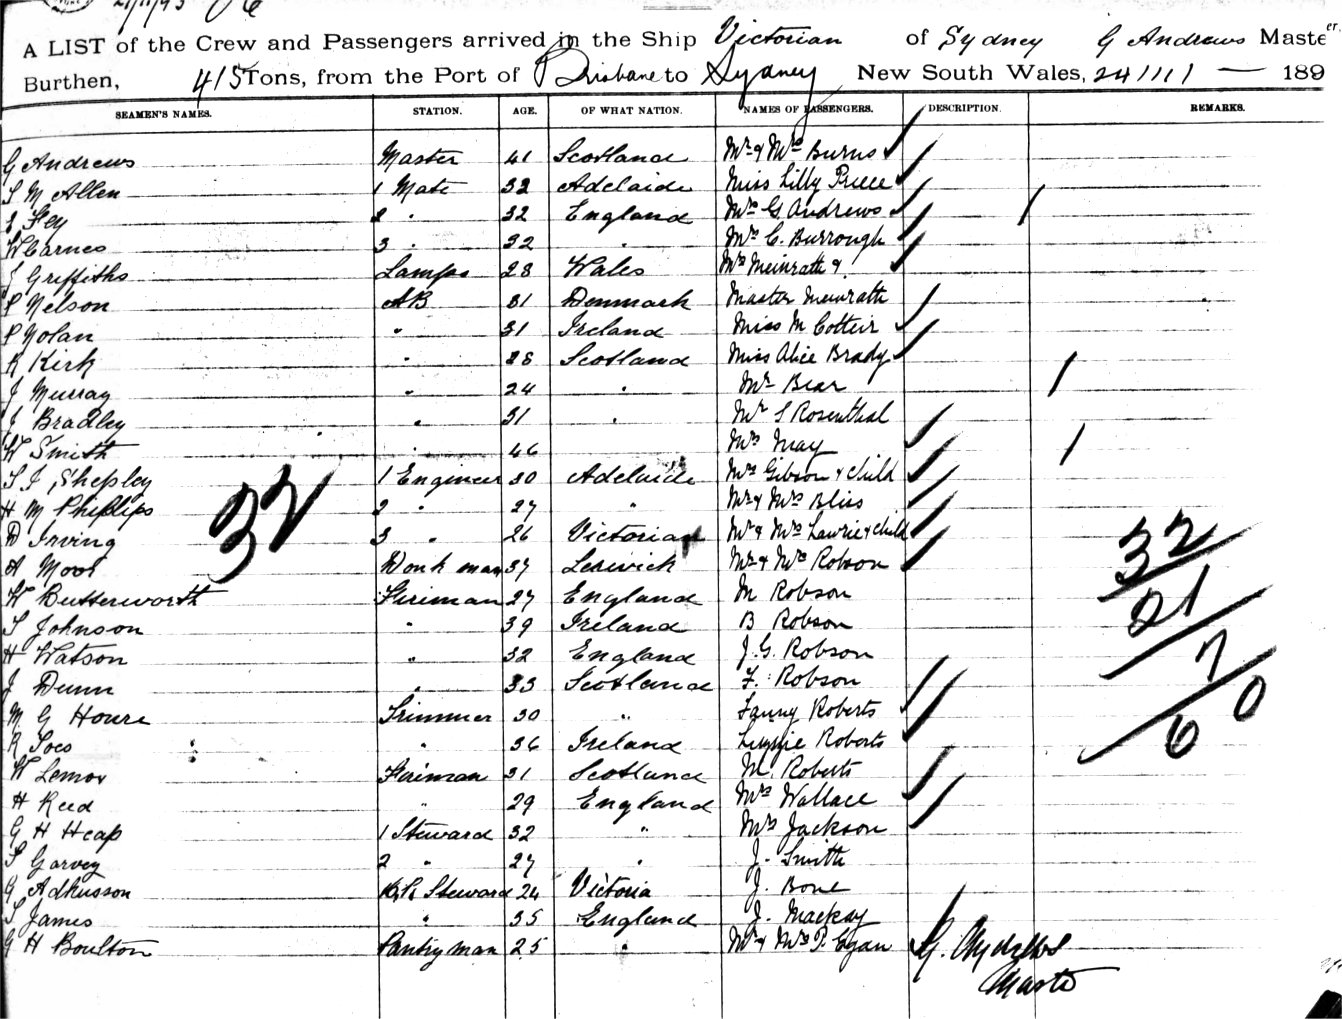 21/11/93
A LIST of the Crew and Passengers arrived in the Ship Victorian of Sydney G Andrews Master
Burthen, 415 Tons, from the Port of Brisbane to Sydney New South Wales, 24/11/1 — 189
SEAMEN'S NAMES. STATION. AGE. OF WHAT NATION. NAMES OF PASSENGERS. DESCRIPTION. REMARKS.
G Andrews Master 41 Scotland Mr & Mrs Burns
S M Allen 1 Mate 32 Adelaide Miss Lilly Preece
Fey 2 " 32 England Mrs G Andrews
W Carnes 3 " 32 " Mrs C. Burrough
J Griffiths Lamps 28 Wales Mrs Meinrath &
P Nelson AB 31 Denmark Master Meinrath
P Nolan " 31 Ireland Miss M Cotteir
R Kirk " 28 Scotland Miss Alice Brady
J Murray " 24 " Mr Bear
J Bradley " 31 " Mr S Rosenthal
W Smith " 46 " Mrs May
S J Shepley 1 Engineer 30 Adelaide Mrs Gibson & Child
H M Phillips 2 " 27 " Mr & Mrs Bliss
D Irving 3 " 26 Victorian Mr & Mrs Lawrie & child
32
A Moor Donkman 37 Lerwick Mr & Mrs Robson
32
W Butterworth Fireman 27 England M Robson
21
S Johnson " 39 Ireland B Robson
H Watson " 32 England J. G. Robson
7
J Dunn " 33 Scotland F. Robson
M G Houre Trimmer 30 " Fanny Roberts
0
R Soes " 36 Ireland Lizzie Roberts
60
W Lemor Fireman 31 Scotland M. Roberts
H Reed " 29 England Mrs Wallace
G H Heap 1 Steward 32 " Mrs Jackson
S Garvey 2 " 27 " J. Smith
G Adkusson Steward 24 Victoria J. Bone
S James " 35 England J. Mackay
G H Boulton Pantryman 25 " Mr & Mrs P. Egan G. Andrews
Master